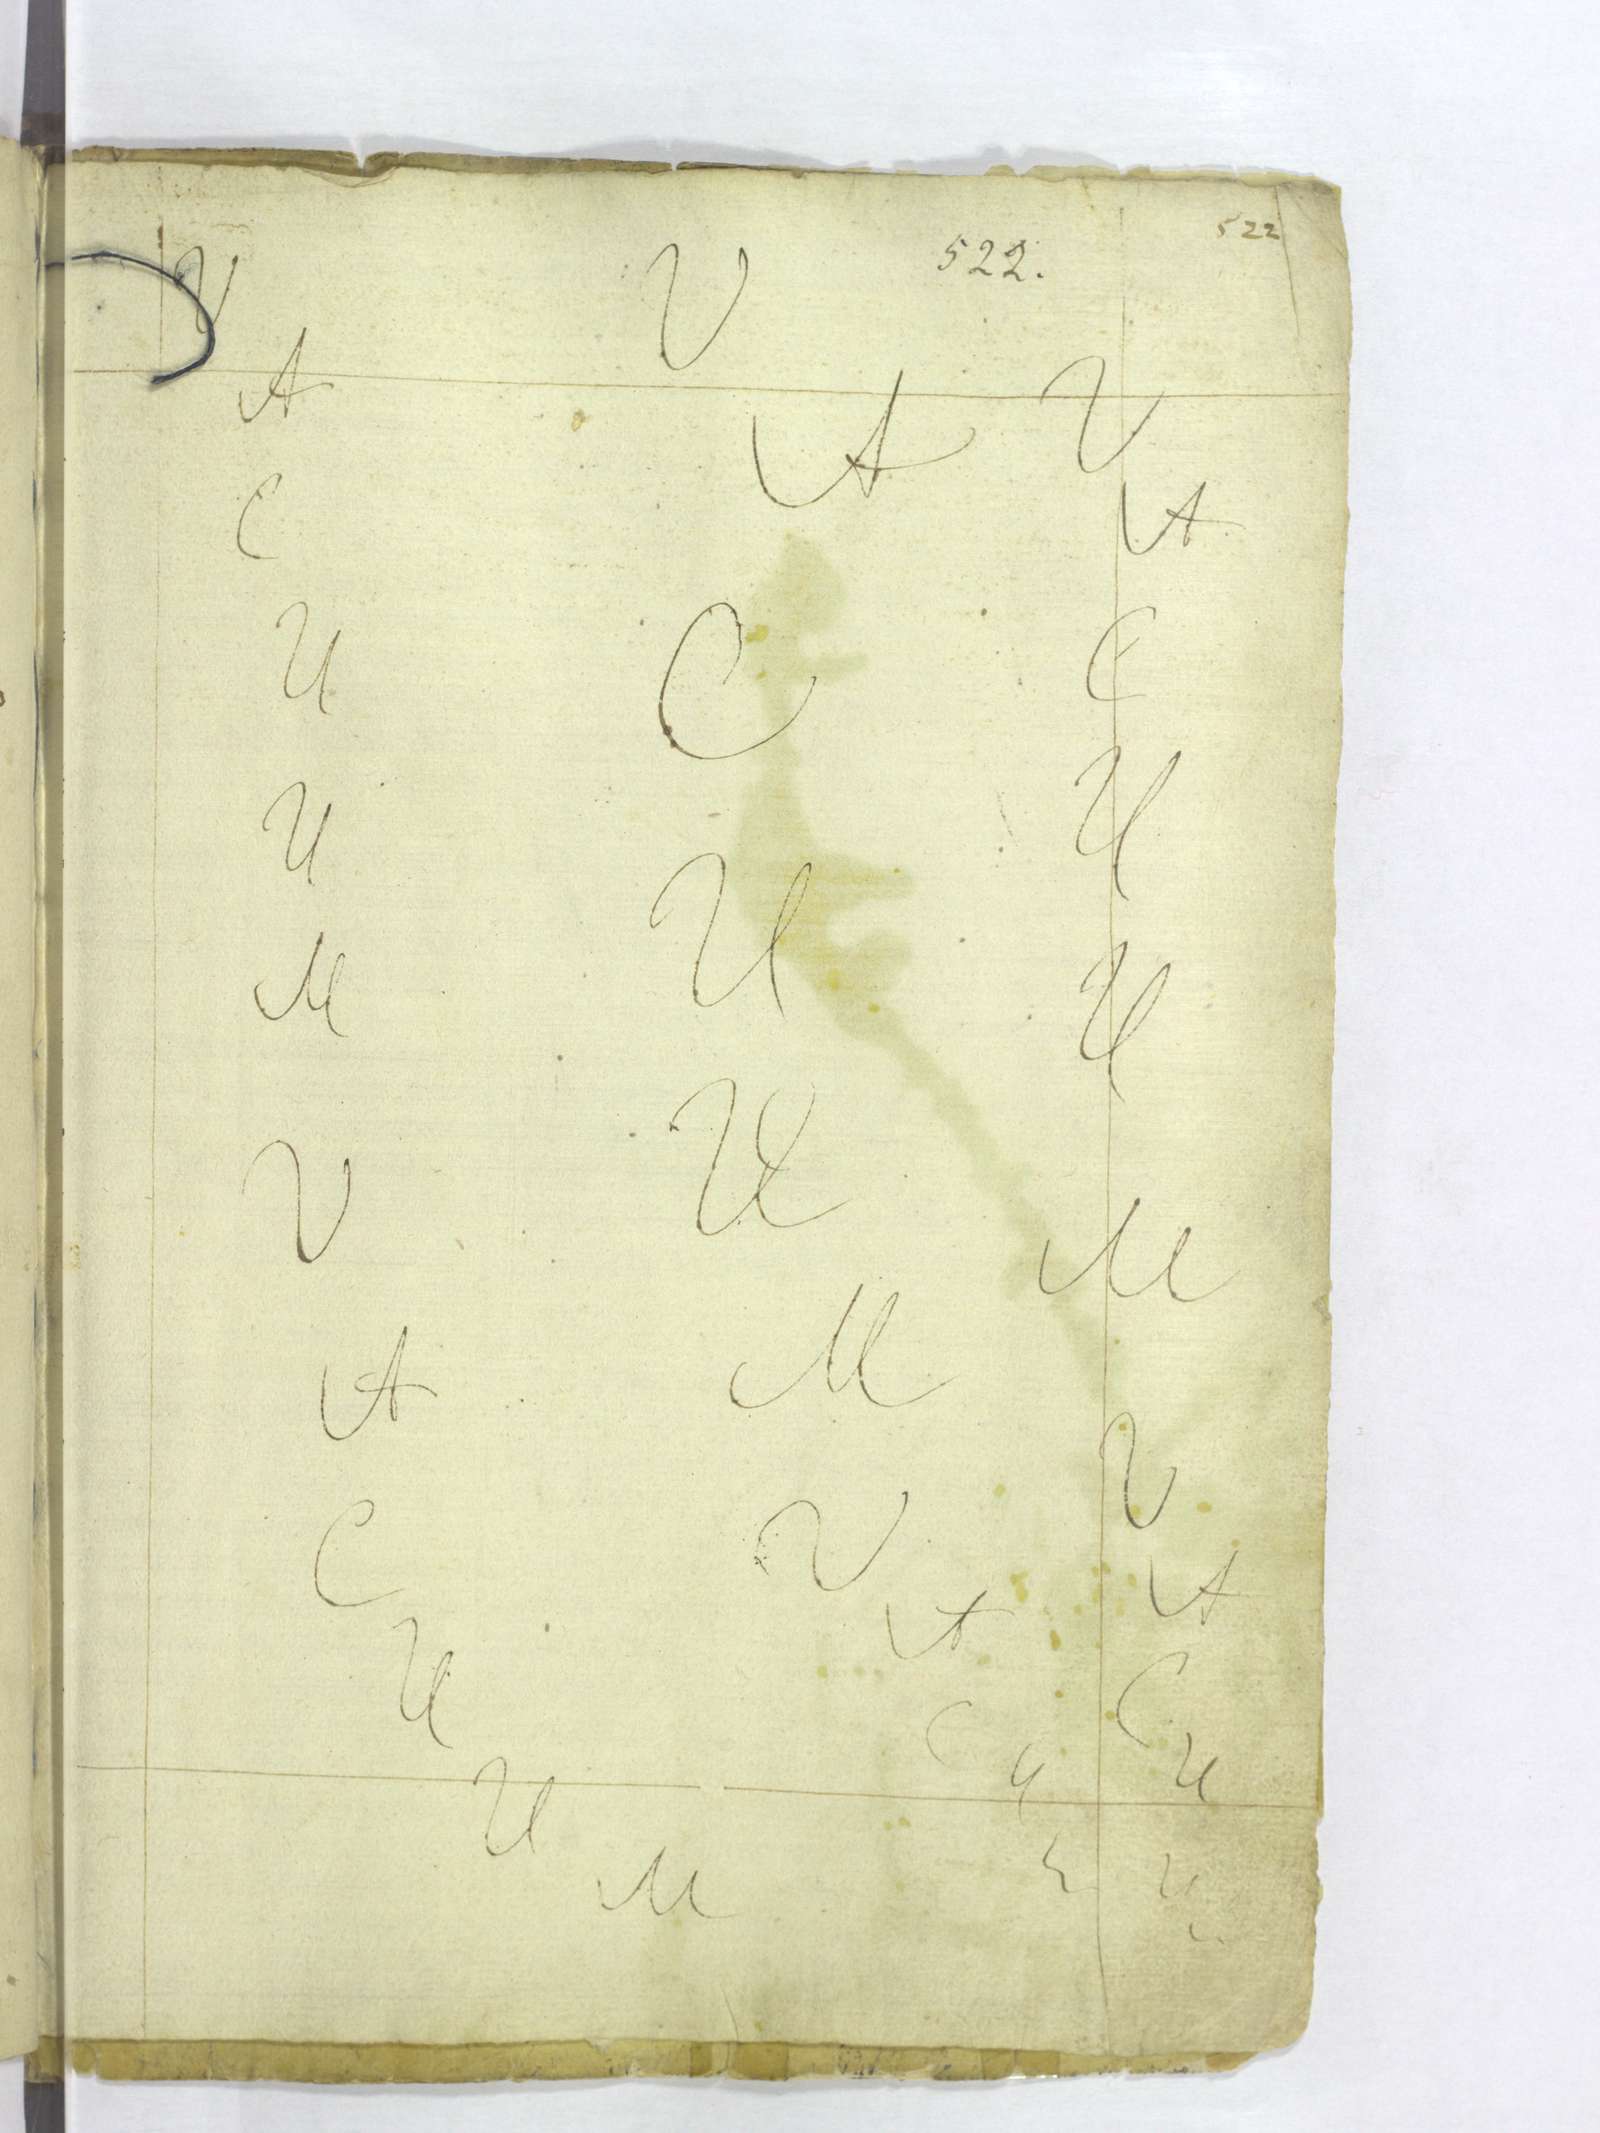 522
522.
V
A
C
U
U
M
V
A
C
U
U
M
V
A
C
U
U
M
V
A
C
U
V
A
C
U
U
M
V
A
C
U
U